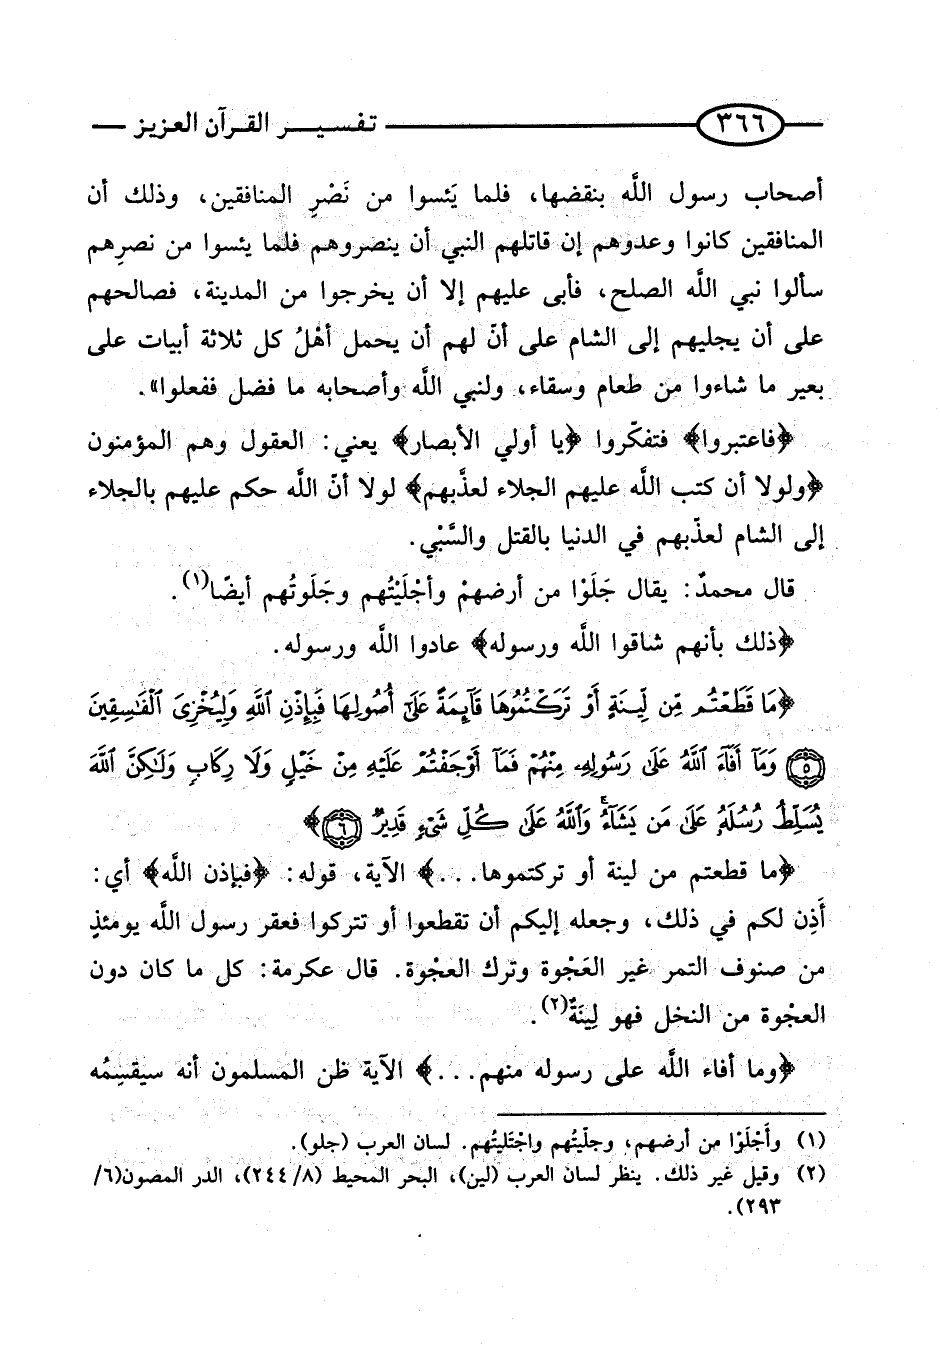 ٣٦٦ تفسير القرآن العزيز
أصحاب رسول اللَّه بنقضها، فلما يَئسوا من نَصْرِ المنافقين، وذلك أن
المنافقين كانوا وعدوهم إن قاتلهم النبي أن ينصروهم فلما يئسوا من نصرِهم
سألوا نبي اللَّه الصلح، فأبى عليهم إلا أن يخرجوا من المدينة، فصالحهم
على أن يجليهم إلى الشام على أنّ لهم أن يحمل أهْلُ كل ثلاثة أبيات على
بعير ما شاءوا من طعام وسقاء، ولنبي اللَّه وأصحابه ما فضل ففعلوا».
﴿فاعتبروا﴾ فتفكّروا ﴿يا أولي الأبصار﴾ يعني: العقول وهم المؤمنون
﴿ولولا أن كتب اللَّه عليهم الجلاء لعذَّبهم﴾ لولا أنّ اللَّه حكم عليهم بالجلاء
إلى الشام لعذّبهم في الدنيا بالقتل والسَّبْي.
قال محمدٌ: يقال جَلَوْا من أرضهمْ وأجْلَيْتُهم وجَلَوتُهم أيضًا(١).
﴿ذلك بأنهم شاقوا اللَّه ورسوله﴾ عادوا اللَّه ورسوله.
﴿مَا قَطَعْتُم مِّن لِّينَةٍ أَوْ تَرَكْتُمُوهَا قَآئِمَةً عَلَىٰٓ أُصُولِهَا فَبِإِذْنِ ٱللَّهِ وَلِيُخْزِىَ ٱلْفَٰسِقِينَ
۝٥ وَمَآ أَفَآءَ ٱللَّهُ عَلَىٰ رَسُولِهِۦ مِنْهُمْ فَمَآ أَوْجَفْتُمْ عَلَيْهِ مِنْ خَيْلٍ وَلَا رِكَابٍ وَلَٰكِنَّ ٱللَّهَ
يُسَلِّطُ رُسُلَهُۥ عَلَىٰ مَن يَشَآءُ ۚ وَٱللَّهُ عَلَىٰ كُلِّ شَىْءٍ قَدِيرٌ ۝٦﴾
﴿ما قطعتم من لينة أو تركتموها...﴾ الآية، قوله: ﴿فبإذن اللَّه﴾ أي:
أَذِن لكم في ذلك، وجعله إليكم أن تقطعوا أو تتركوا فعقر رسول اللَّه يومئذٍ
من صنوف التمر غير العَجْوة وترك العجْوة. قال عكرمة: كل ما كان دون
العجْوة من النخل فهو لِينَةٌ(٢).
﴿وما أفاء اللَّه على رسوله منهم...﴾ الآية ظن المسلمون أنه سيقسِمُه
(١) وأَجْلَوْا من أرضهم، وجلّيتُهم واجْتَليتُهم. لسان العرب (جلو).
(٢) وقيل غير ذلك. ينظر لسان العرب (لين)، البحر المحيط (٨/ ٢٤٤)، الدر المصون(٦/
٢٩٣).